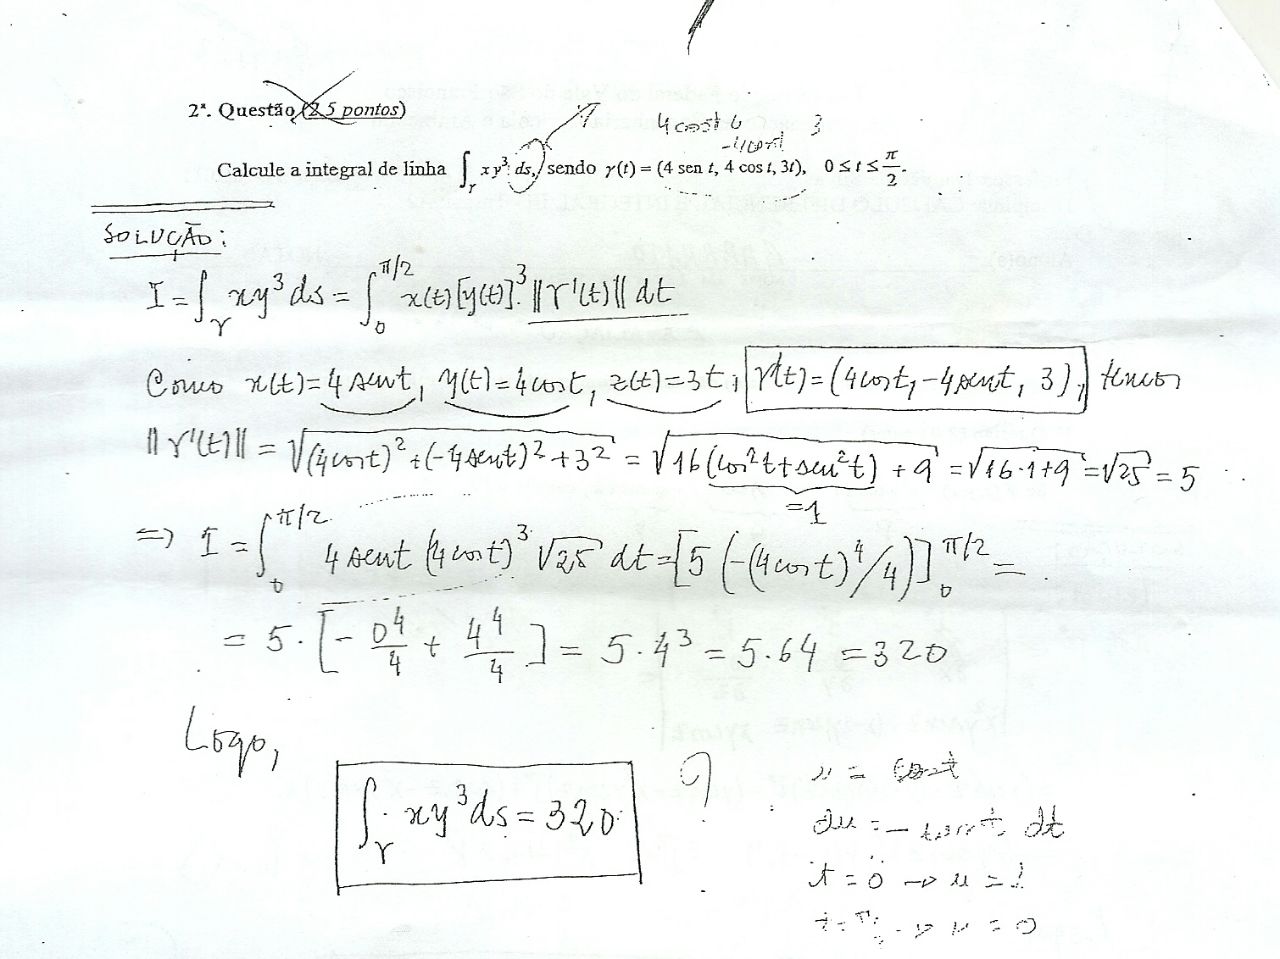 2ª. Questão (2,5 pontos)
4 cos t
-4 cos t
3
Calcule a integral de linha ∫_γ xy³ ds, sendo γ(t) = (4 sen t, 4 cos t, 3t), 0 ≤ t ≤ π/2.
SOLUÇÃO:
I = ∫_γ xy³ ds = ∫_0^{π/2} x(t) [y(t)]³. ||γ'(t)|| dt
Como x(t) = 4 sen t, y(t) = 4 cos t, z(t) = 3t, γ'(t) = (4 cos t, -4 sen t, 3), temos
||γ'(t)|| = √((4 cos t)² + (-4 sen t)² + 3²) = √(16 (cos² t + sen² t) + 9) = √(16·1+9) = √25 = 5
=1
⇒ I = ∫_0^{π/2} 4 sen t (4 cos t)³ √25 dt = [5 (-(4 cos t)⁴/4)]_0^{π/2} =
= 5·[-0⁴/4 + 4⁴/4] = 5·4³ = 5.64 = 320
Logo,
∫_γ xy³ ds = 320
u = cos t
du = - sen t dt
t = 0 → u = 1
t = π/2 → u = 0